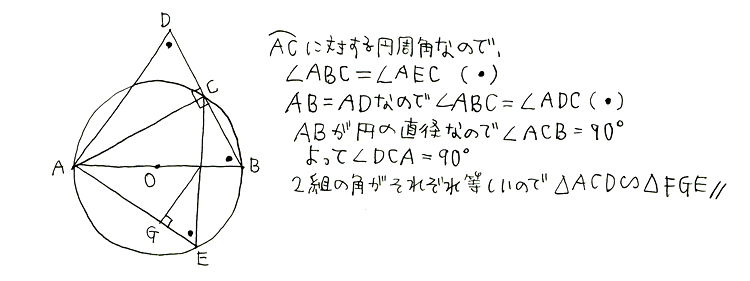 D
C
A
O
B
G
E
ACに対する円周角なので、
∠ABC=∠AEC (•)
AB=ADなので∠ABC=∠ADC(•)
ABが円の直径なので∠ACB=90°
よって∠DCA=90°
2組の角がそれぞれ等しいので △ACD∽△FGE//